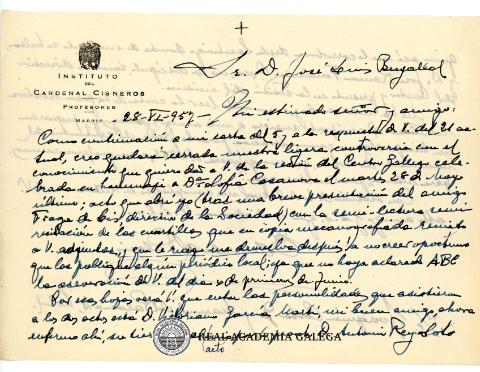 +
INSTITUTO
DEL
CARDENAL CISNEROS
PROFESORES
MADRID
Sr. D. José Luis Bugallal
28-VI-957.- Mi estimado señor y amigo:
Como continuación a mi carta del 5 y a la respuesta de V. del 21 ac-
tual, creo quedará cerrada nuestra ligera controversia con el
conocimiento que quiero dar a V. de la reunión del Centro Gallego cele-
brada en homenaje a Dª Sofía Casanova el martes 28 de Mayo
último; acto que abrí yo (tras una breve presentación del amigo
Fraga de la directiva de la Sociedad) con la semi-lectura semi-
recitación de las cuartillas que en copia mecanografiada remito
a V. adjuntas, y que le ruego me devuelva después, a no creer oportuno
que las publique algún periódico local; ya que no haya aclarado ABC
la aseveración de V. del día de primeros de Junio.
Por esas hojas verá V. que entre las personalidades que asistieron
a los dos actos está D. Victoriano García Martí, mi buen amigo, ahora
enfermo ahí, su tierra D. Antonio Rey Soto
acto
REAL ACADEMIA GALEGA